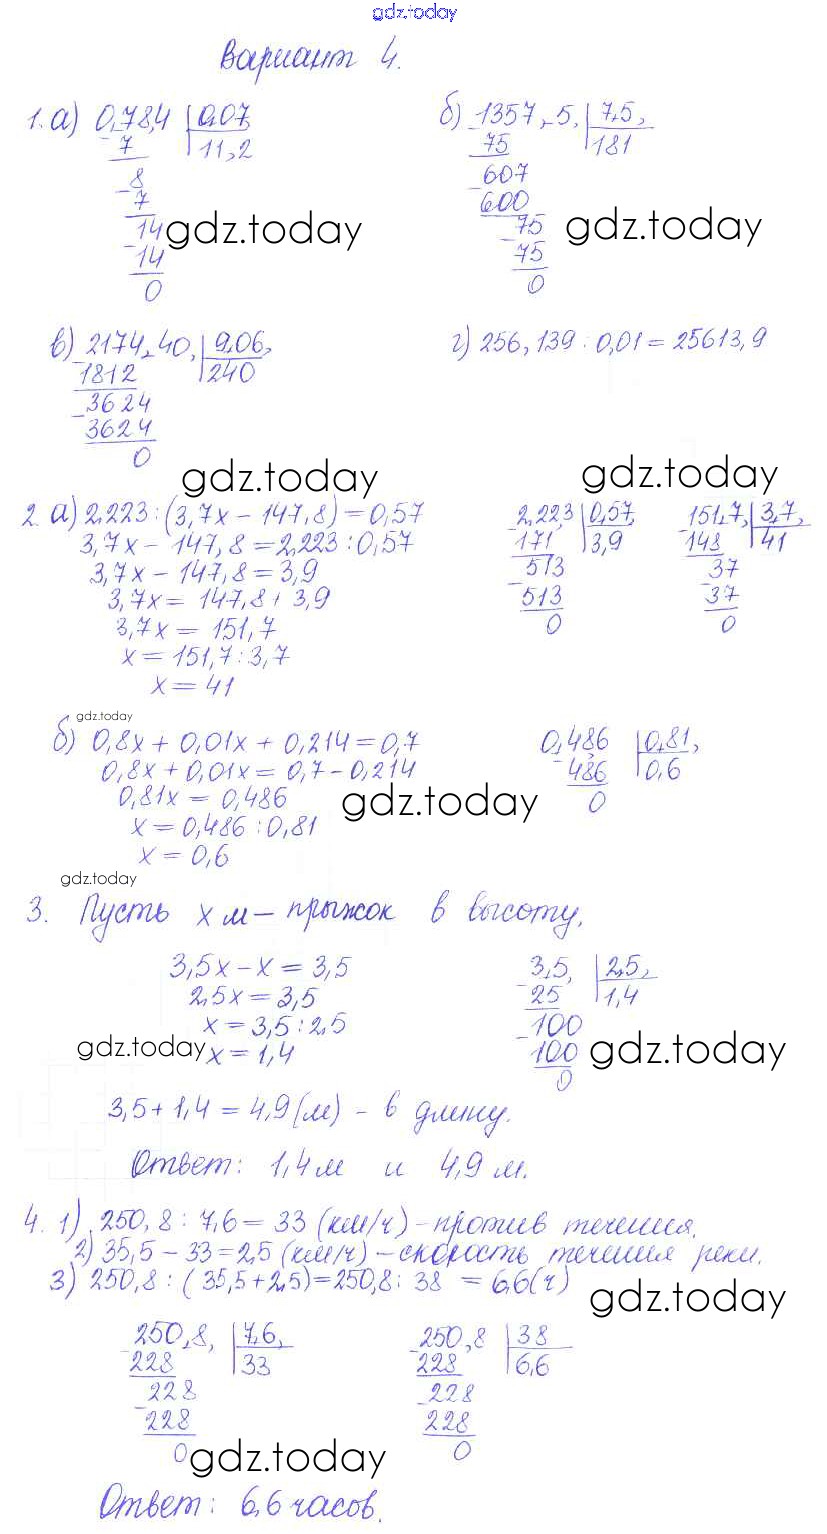 gdz.today
Вариант 4.
1. а) 0,78,4 | 0,07,
7 | 11,2
8
7
14
14
0
gdz.today
б) 1357,5, | 7,5,
75 | 181
607
600
75
75
0
gdz.today
в) 2174,40, | 9,06,
1812 | 240
3624
3624
0
gdz.today
г) 256,139 : 0,01 = 25613,9
gdz.today
2. а) 2,223 : (3,7х - 147,8) = 0,57
3,7х - 147,8 = 2,223 : 0,57
3,7х - 147,8 = 3,9
3,7х = 147,8 + 3,9
3,7х = 151,7
х = 151,7 : 3,7
х = 41
2,22,3 | 0,57,
171 | 3,9
513
513
0
151,7, | 3,7,
148 | 41
37
37
0
gdz.today
б) 0,8х + 0,01х + 0,214 = 0,7
0,8х + 0,01х = 0,7 - 0,214
0,81х = 0,486
х = 0,486 : 0,81
х = 0,6
gdz.today
0,486 | 0,81,
486 | 0,6
0
gdz.today
3. Пусть х м - прыжок в высоту.
3,5х - х = 3,5
2,5х = 3,5
х = 3,5 : 2,5
х = 1,4
gdz.today
3,5, | 2,5,
25 | 1,4
100
100
0
gdz.today
3,5 + 1,4 = 4,9 (м) - в длину.
Ответ: 1,4 м и 4,9 м.
4. 1) 250,8 : 7,6 = 33 (км/ч) - против течения.
2) 35,5 - 33 = 2,5 (км/ч) - скорость течения реки.
3) 250,8 : (35,5 + 2,5) = 250,8 : 38 = 6,6 (ч)
gdz.today
250,8, | 7,6,
228 | 33
228
228
0
250,8 | 38
228 | 6,6
228
228
0
gdz.today
gdz.today
Ответ: 6,6 часов.